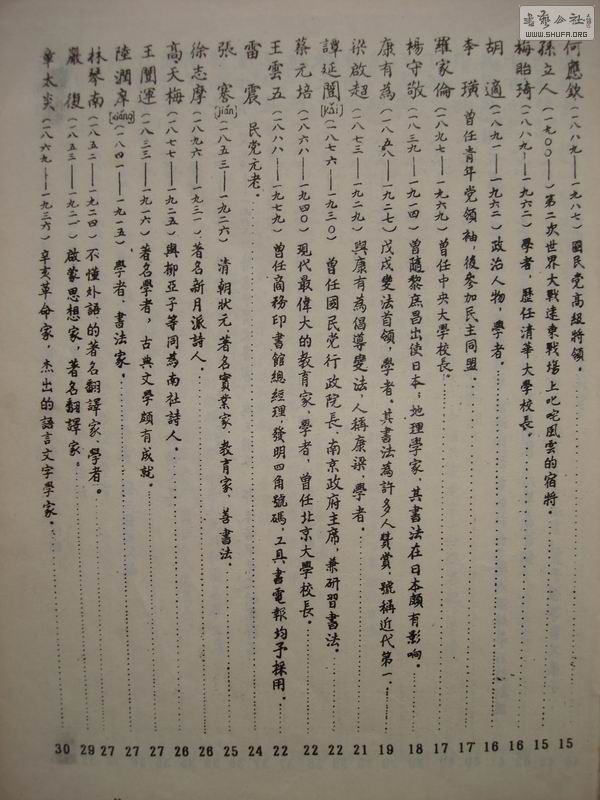 書藝公社
WWW.SHUFA.ORG
何應欽(一八八九——一九八七)國民党高級將領。 15
孫立人(一九〇〇——)第二次世界大戰遠東戰場上叱咤風雲的宿將。 15
梅貽琦(一八八九——一九六二)學者,歷任清華大學校長。 16
胡適(一八九一——一九六二)政治人物,學者。 16
李璜 曾任青年党領袖,後參加民主同盟。 17
羅家倫(一八九七——一九六九)曾任中央大學校長。 17
楊守敬(一八三九——一九一四)曾隨黎庶昌出使日本;地理學家,其書法在日本頗有影响。 18
康有為(一八五八——一九二七)戊戌變法首領,學者。其書法為許多人贊賞,號稱近代第一。 19
梁啟超(一八七三——一九二九)與康有為倡導變法,人稱康梁,學者。 21
譚延闓[kǎi](一八七六——一九三〇)曾任國民党行政院長、南京政府主席,兼研習書法。 22
蔡元培(一八六八——一九四〇)現代最偉大的教育家、學者,曾任北京大學校長。 22
王雲五(一八八八——一九七九)曾任商務印書館總經理,發明四角號碼,工具書電報均予採用。 22
雷震 民党元老。 24
張謇[jiǎn](一八五三——一九二六)清朝狀元,著名實業家、教育家,善書法 25
徐志摩(一八九六——一九三一)著名新月派詩人。 26
高天梅(一八七七——一九二五)與柳亞子等同為南社詩人。 26
王闓運(一八三三——一九一六)著名學者,古典文學頗有成就。 27
陸潤庠[xiáng](一八四一——一九一五)學者、書法家。 27
林琴南(一八五二——一九二四)不懂外語的著名翻譯家、學者。 27
嚴復(一八五三——一九二一)啟蒙思想家,著名翻譯家。 29
章太炎(一八六九——一九三六)辛亥革命家,杰出的語言文字學家。 30